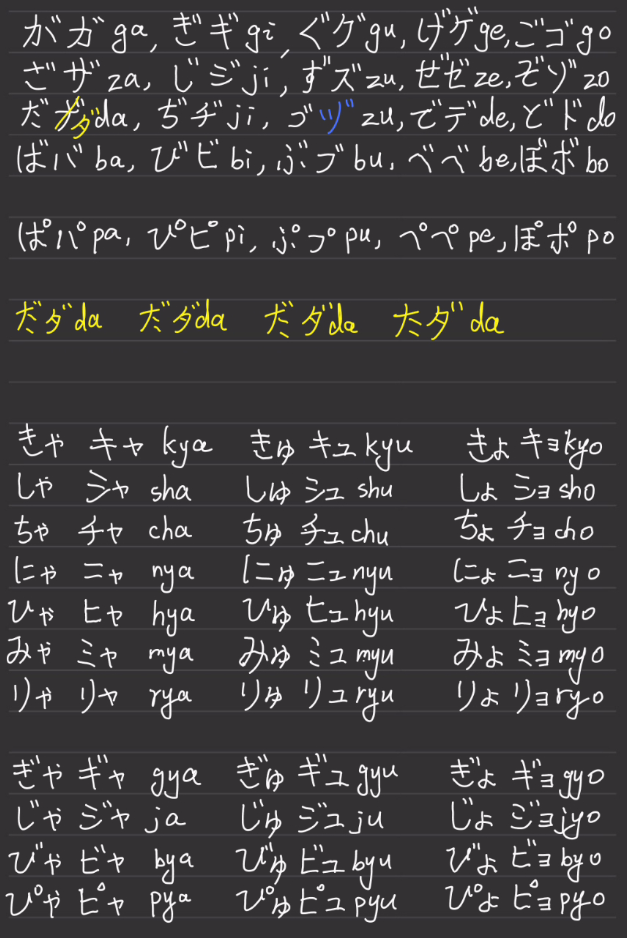 がガga, ぎギgi, ぐグgu, げゲge, ごゴgo
ざザza, じジji, ずズzu, ぜゼze, ぞゾzo
だダda, ぢヂji, づヅzu, でデde, どドdo
ばバba, びビbi, ぶブbu, べベbe, ぼボbo
ぱパpa, ぴピpi, ぷプpu, ぺペpe, ぽポpo
だダda だダda だダda だダda
きゃ キャ kya きゅ キュ kyu きょ キョ kyo
しゃ シャ sha しゅ シュ shu しょ ショ sho
ちゃ チャ cha ちゅ チュ chu ちょ チョ cho
にゃ ニャ nya にゅ ニュ nyu にょ ニョ nyo
ひゃ ヒャ hya ひゅ ヒュ hyu ひょ ヒョ hyo
みゃ ミャ mya みゅ ミュ myu みょ ミョ myo
りゃ リャ rya りゅ リュ ryu りょ リョ ryo
ぎゃ ギャ gya ぎゅ ギュ gyu ぎょ ギョ gyo
じゃ ジャ ja じゅ ジュ ju じょ ジョ jyo
びゃ ビャ bya びゅ ビュ byu びょ ビョ byo
ぴゃ ピャ pya ぴゅ ピュ pyu ぴょ ピョ pyo